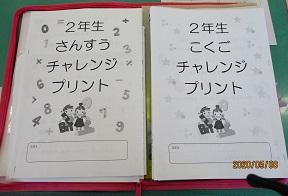 2年生
さんすう
チャレンジ
プリント
2年生
こくご
チャレンジ
プリント
2020/05/08